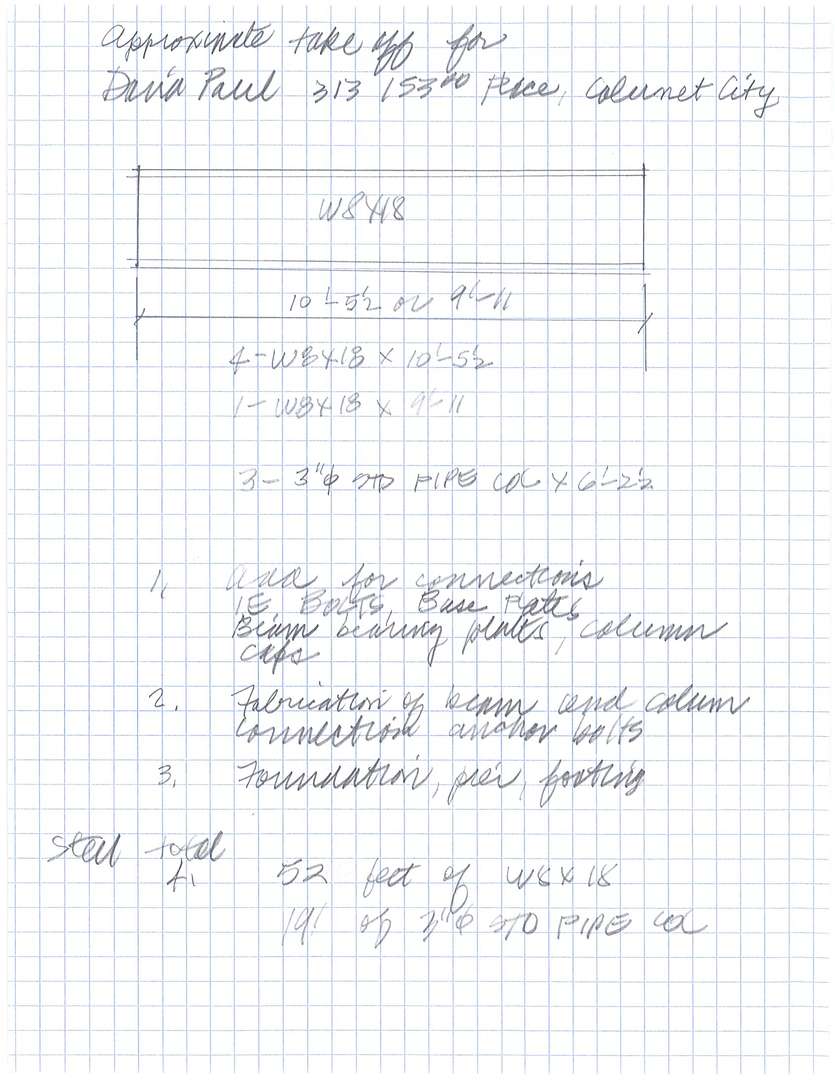 Approximate take off for
David Paul 313 153rd Place, Calumet City
W8X18
10'-5½ or 9'-11
4-W8X18 X 10'-5½
1-W8X18 X 9'-11
3- 3"φ STD PIPE COL X 6'-2½
1. add for connections
IE BOLTS, Base Plates
Beam bearing plates, column
caps
2. Fabrication of beam and colum
connection anchor bolts
3. Foundation, pier, footing
Steel total
4. 52 feet of W8X18
19' of 3"φ STD PIPE COL